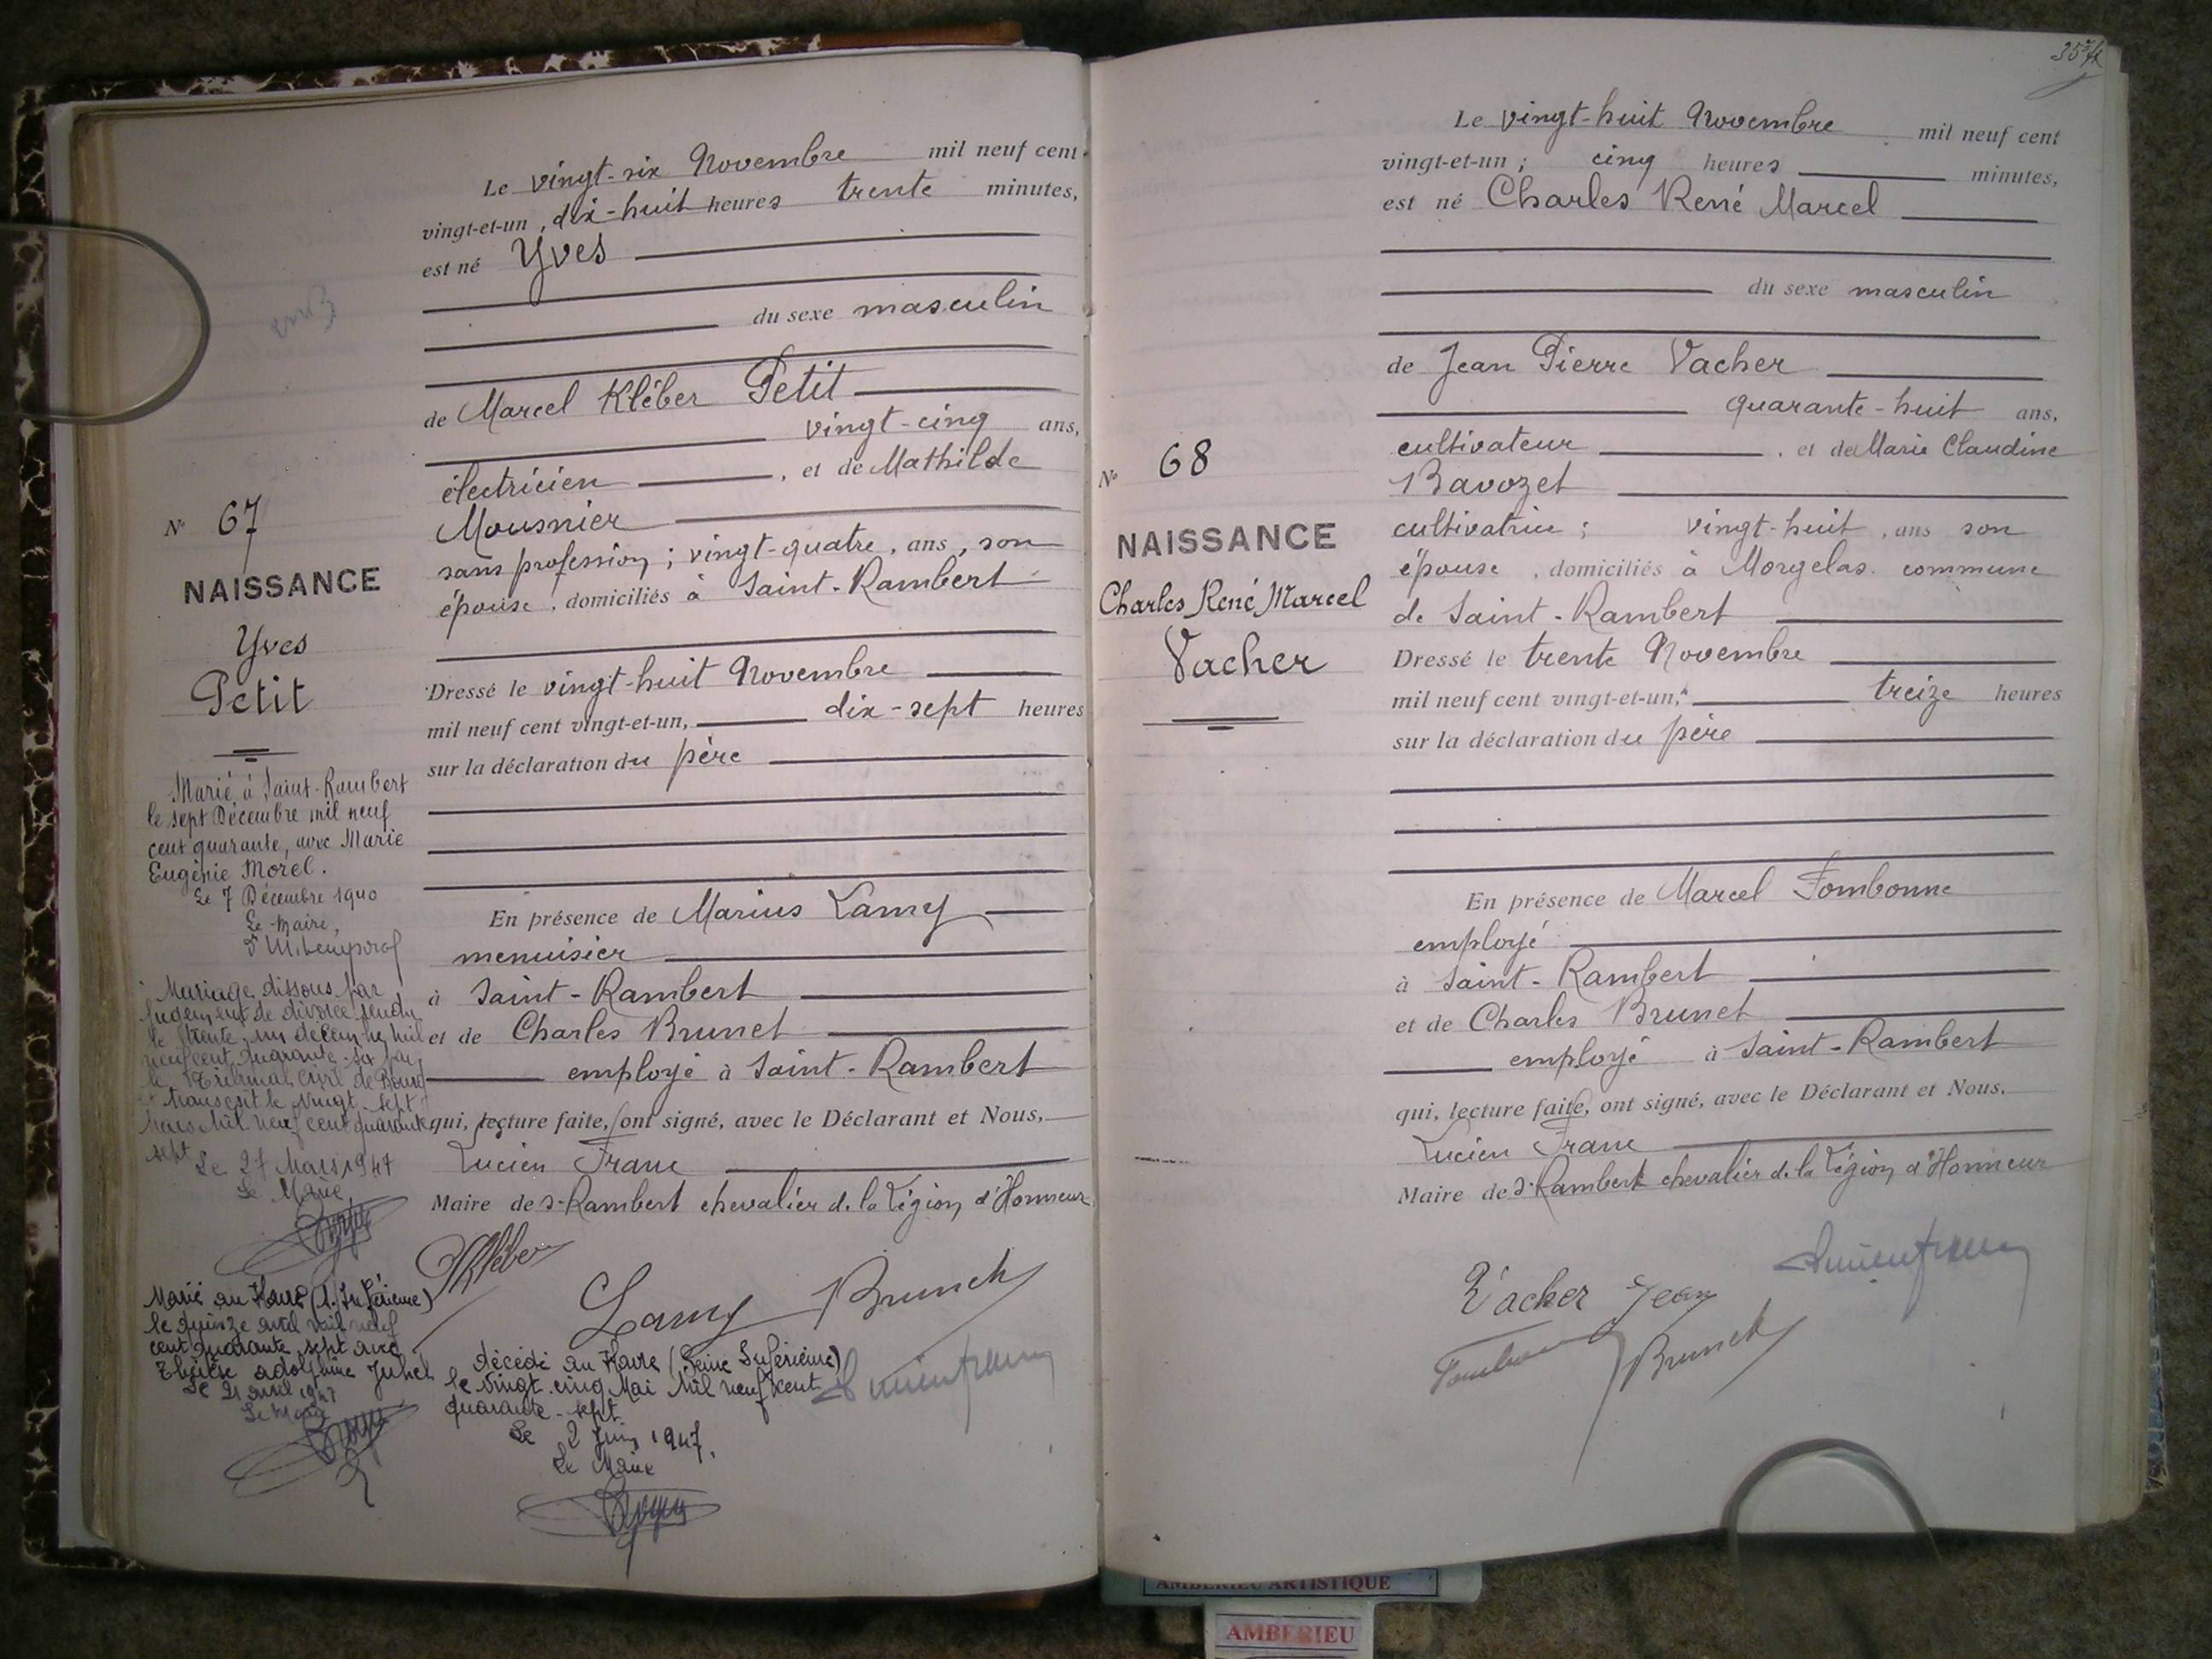 Le vingt-six Novembre mil neuf cent
vingt-et-un, dix-huit heures trente minutes,
est né Yves
du sexe masculin
de Marcel Kléber Petit
vingt-cinq ans,
électricien, et de Mathilde
Mousnier
sans profession; vingt-quatre, ans, son
épouse, domiciliés à Saint-Rambert
Dressé le vingt-huit Novembre
mil neuf cent vingt-et-un, dix-sept heures
sur la déclaration du père
En présence de Marius Lamy
menuisier
à Saint-Rambert
et de Charles Brunet
employé à Saint-Rambert
qui, lecture faite, ont signé, avec le Déclarant et Nous,
Lucien Franc
Maire de St-Rambert chevalier de la Légion d'Honneur
Kléber
Lamy Brunet
Lucien Franc
N° 67
NAISSANCE
Yves
Petit
Marié à Saint-Rambert
le sept Décembre mil neuf
cent quarante, avec Marie
Eugènie Morel.
Le 7 Décembre 1940
Le Maire,
Mariage dissous par
Jugement de divorce rendu
le trente un décembre mil
neuf cent quarante-six par
le Tribunal Civil de Bourg
transcrit le vingt-sept
Mars Mil neuf cent quarante
sept
Le 27 Mars 1947
Le Maire
Marié au Havre (S. Inférieure)
le quinze avril mil neuf
cent quarante sept avec
Thérèse Adolphine Juhel
Le 21 avril 1947
Le Maire
décédé au Havre (Seine Inférieure)
le vingt-cinq Mai Mil neuf cent
quarante-sept
Le 2 Juin 1947.
Le Maire
35
Le vingt-huit Novembre mil neuf cent
vingt-et-un; cinq heures minutes,
est né Charles René Marcel
du sexe masculin
de Jean Pierre Vacher
quarante-huit ans,
cultivateur, et de Marie Claudine
Bavozet
cultivatrice; vingt-huit, ans son
épouse, domiciliés à Morgelas commune
de Saint-Rambert
Dressé le trente Novembre
mil neuf cent vingt-et-un, treize heures
sur la déclaration du père
En présence de Marcel Fombonne
employé
à Saint-Rambert
et de Charles Brunet
employé à Saint-Rambert
qui, lecture faite, ont signé, avec le Déclarant et Nous,
Lucien Franc
Maire de St-Rambert chevalier de la Légion d'Honneur
Lucien Franc
Vacher Jean
Brunet
N° 68
NAISSANCE
Charles René Marcel
Vacher
AMBERIEU ARTISTIQUE
AMBERIEU